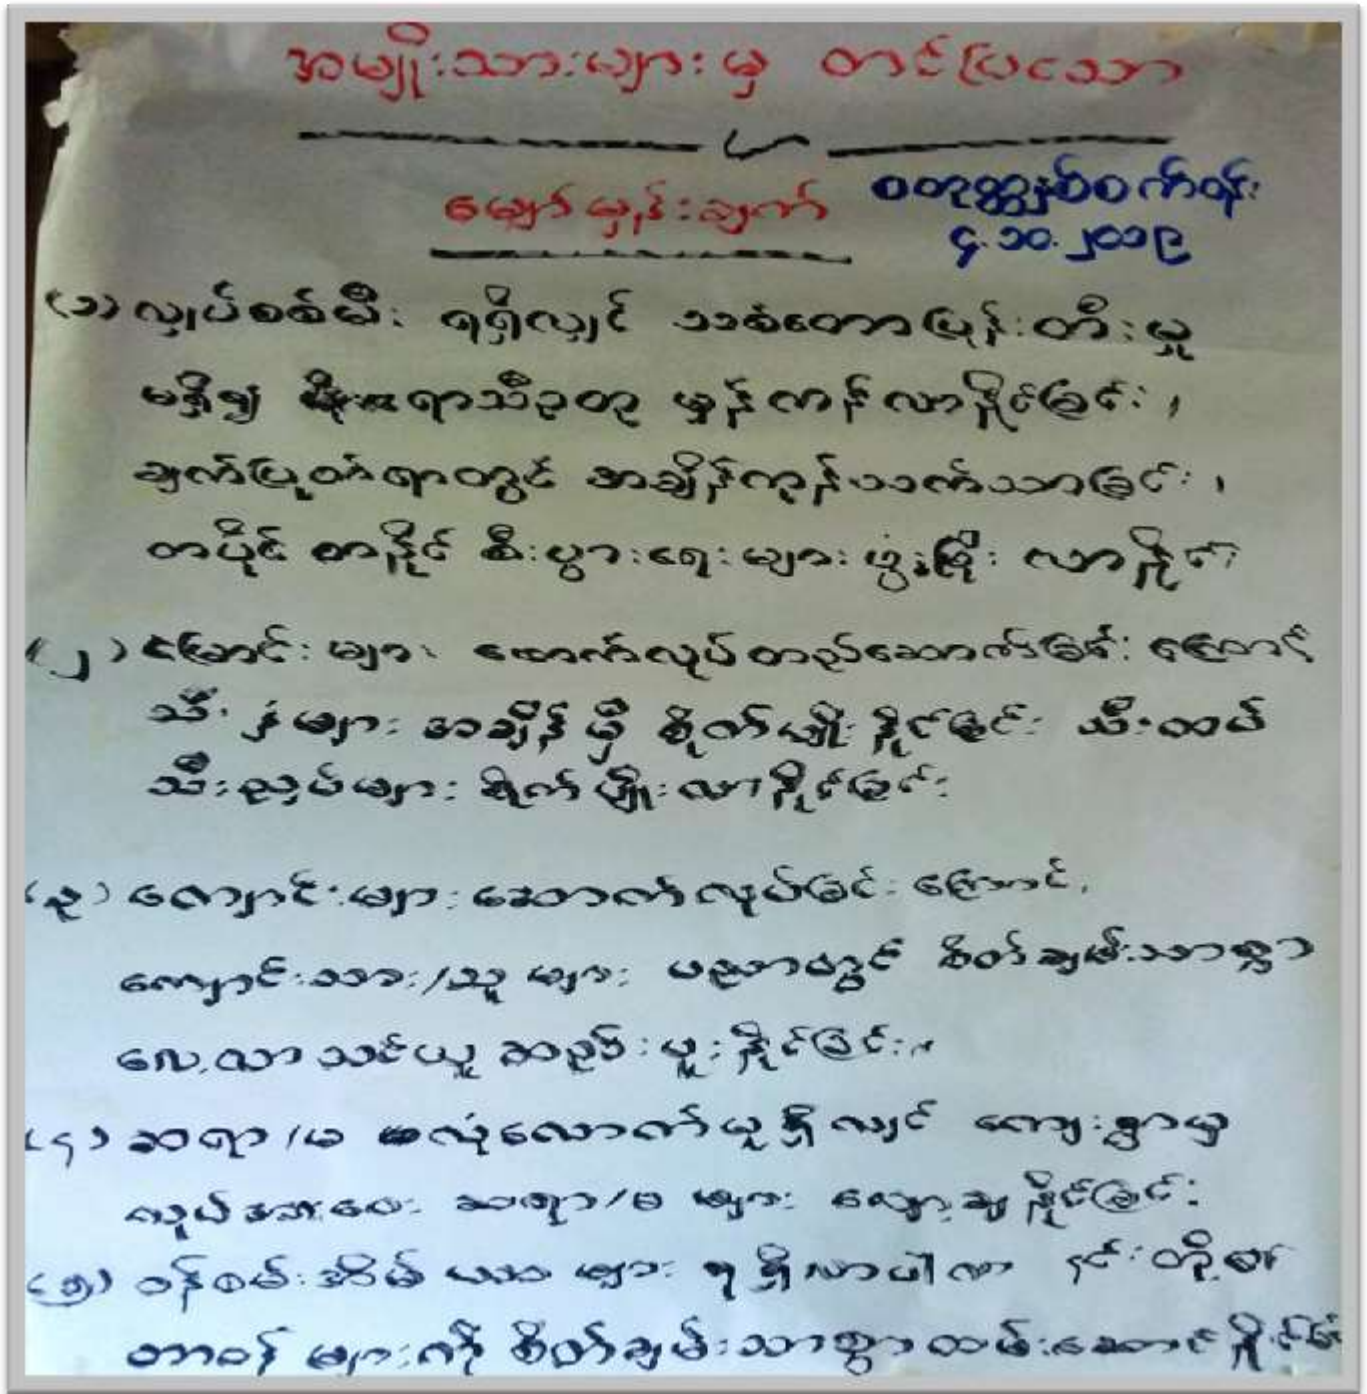 အမျိုးသားများမှ တင်ပြသော
မျှော်မှန်းချက် စတုတ္ထနှစ်စက်ဝန်း
၄.၁၀.၂၀၁၉
(၁) လျှပ်စစ်မီး ရရှိလျှင် သစ်တောပြုန်းတီးမှု
မရှိ၍ ရာသီဥတု မှန်ကန်လာနိုင်ခြင်း၊
ချက်ပြုတ်ရာတွင် အချိန်ကုန်သက်သာခြင်း၊
တပိုင် တနိုင် စီးပွားရေးများ ဖွံ့ဖြိုး လာနိုင်
(၂) မြောင်းများ ဖောက်လုပ်တည်ဆောက်ခြင်းကြောင့်
သီးနှံများ အချိန်မှီ စိုက်ပျိုးနိုင်ခြင်း သီးထပ်
သီးညှပ်များ စိုက်ပျိုးလာနိုင်ခြင်း
(၃) ကျောင်းများဆောက်လုပ်ခြင်းကြောင့်
ကျောင်းသား/သူများ ပညာတွင် စိတ်ချမ်းသာစွာ
လေ့လာသင်ယူ ဆည်းပူးနိုင်ခြင်း။
(၄) ဆရာ/မ လုံလောက်မှုရှိလျှင် ကျေးရွာမှ
လုပ်အားပေး ဆရာ/မများ လျှော့ချနိုင်ခြင်း
(၅) ဝန်ထမ်းအိမ်ယာများ ရရှိလာပါက ၎င်းတို့၏
တာဝန်များကို စိတ်ချမ်းသာစွာထမ်းဆောင်နိုင်ခြင်း